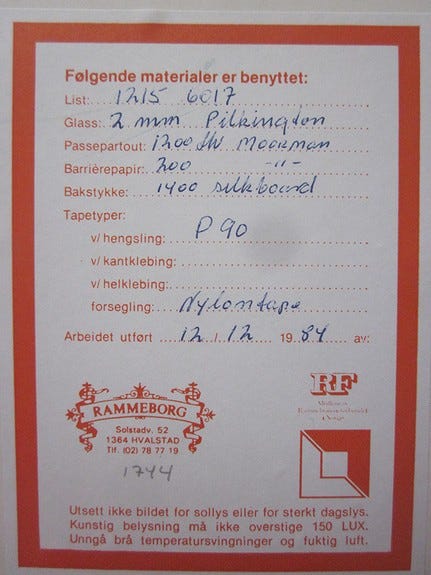 Følgende materialer er benyttet:
List: 1215 6017
Glass: 2 mm Pilkington
Passepartout: 1200 Moorman
Barrièrepapir: 200 -"-
Bakstykke: 1400 silkboard
Tapetyper:
v/hengsling: P90
v/kantklebing:
v/helklebing:
forsegling: Nylontape
Arbeidet utført 12/12 1984 av:
RAMMEBORG
Solstadv. 52
1364 HVALSTAD
Tlf. (02) 78 77 19
1744
RF
Utsett ikke bildet for sollys eller for sterkt dagslys.
Kunstig belysning må ikke overstige 150 LUX.
Unngå brå temperatursvingninger og fuktig luft.